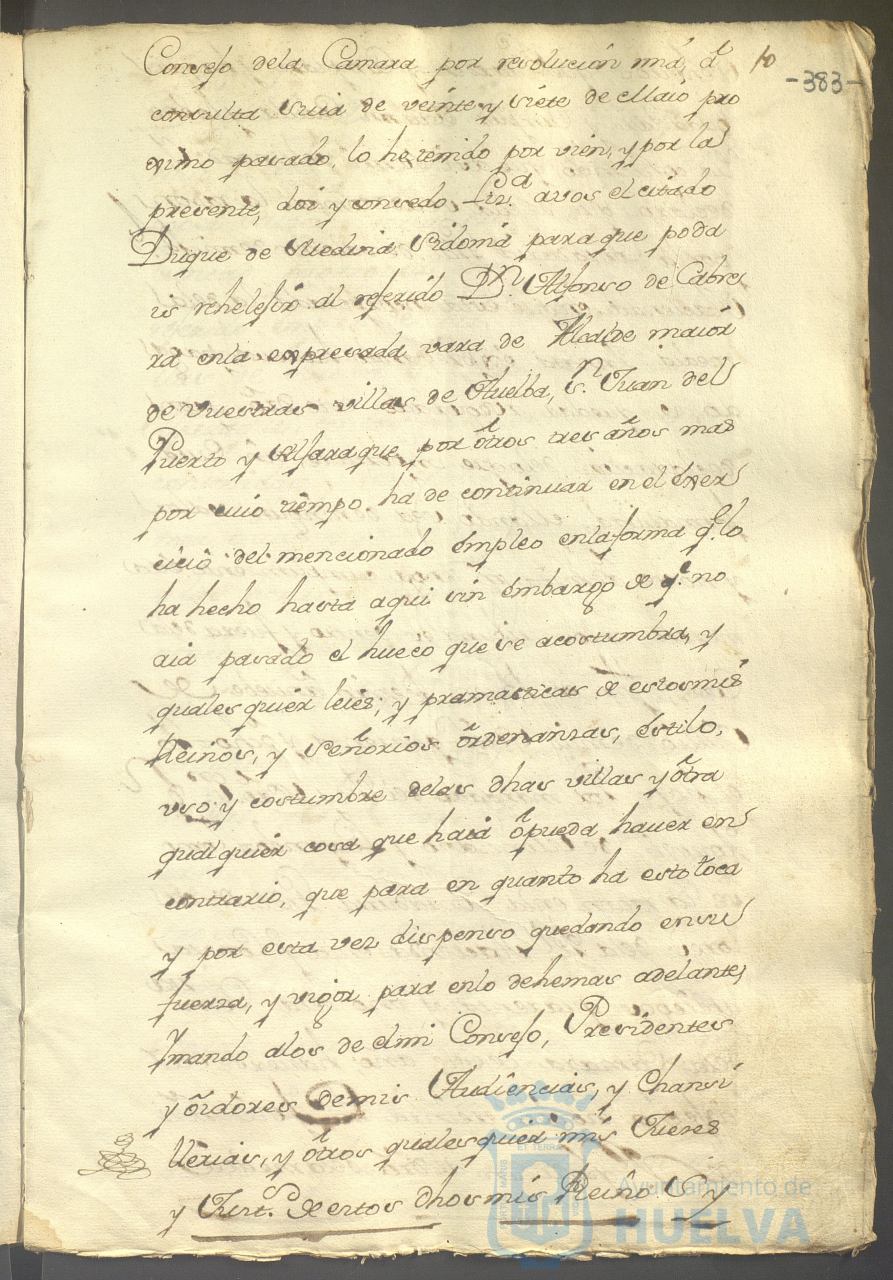 10
-383-
Consejo dela Camara por resolución mia, á
consulta suia de veinte y siete de Maio pro
ximo pasado, lo he tenido por vien, y por la
presente, doi y consedo Liz.ª avos el citado
Duque de Medina Sidonia paraque poda
is rehelejir al referido Dn. Alfonso de Cabre
ra enla expresada vara de Alcalde maior
de vuestras villas de Huelba, Sn. Juan del
Puerto y Alfaraque por ótros tres años mas
por cuio tiempo ha de continuar en el éxer
cicio del mencionado émpleo enlaforma qe. lo
ha hecho hasta aqui sin émbargo de qe. no
aia pasado el hueco que se acostumbra, y
quales quier leies, y pramasticas de estos mis
Reinos, y Señorios órdenansas, éstilo,
uso y costumbre delas dhas villas y ótra
qualquier cosa que haiá ópueda haver en
contrario, que para en quanto ha esto toca
y por esta vez dispenso quedando ensu
fuersa, y vigor para enlo dehemas adelante,
Ymando alos de elmi Consejo, Presidentes
y óidores demis Audiencias, y Chansi
llerias, y ótros quales quier mis Jueses
y Just.s de estos dhos mis Reinos y
Ayuntamiento de
HUELVA